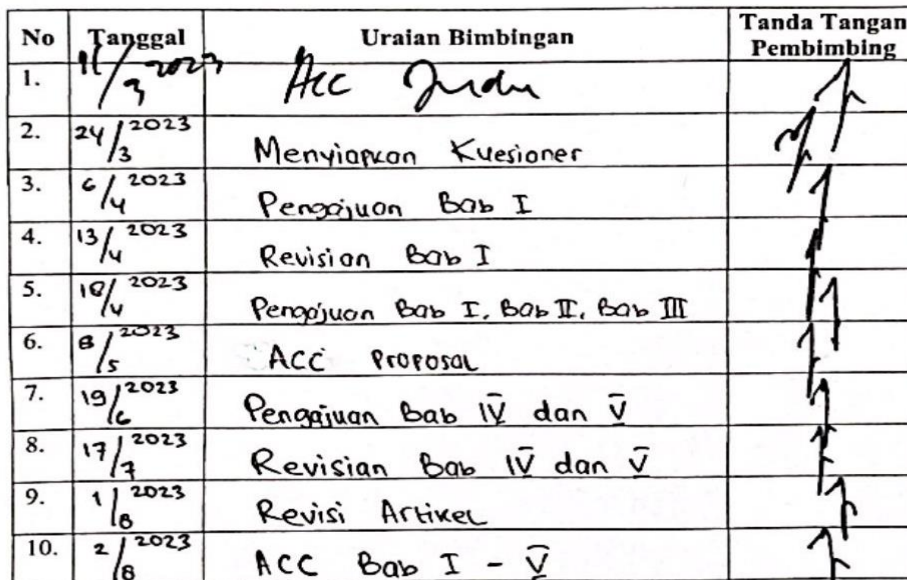 No Tanggal Uraian Bimbingan Tanda Tangan Pembimbing
1. 11/3 2023 Acc Judul
2. 24/3 2023 Menyiapkan Kuesioner
3. 6/4 2023 Pengajuan Bab I
4. 13/4 2023 Revisian Bab I
5. 18/4 2023 Pengajuan Bab I, Bab II, Bab III
6. 8/5 2023 ACC Proposal
7. 19/6 2023 Pengajuan Bab IV dan V
8. 17/7 2023 Revisian Bab IV dan V
9. 1/8 2023 Revisi Artikel
10. 2/8 2023 ACC Bab I - V